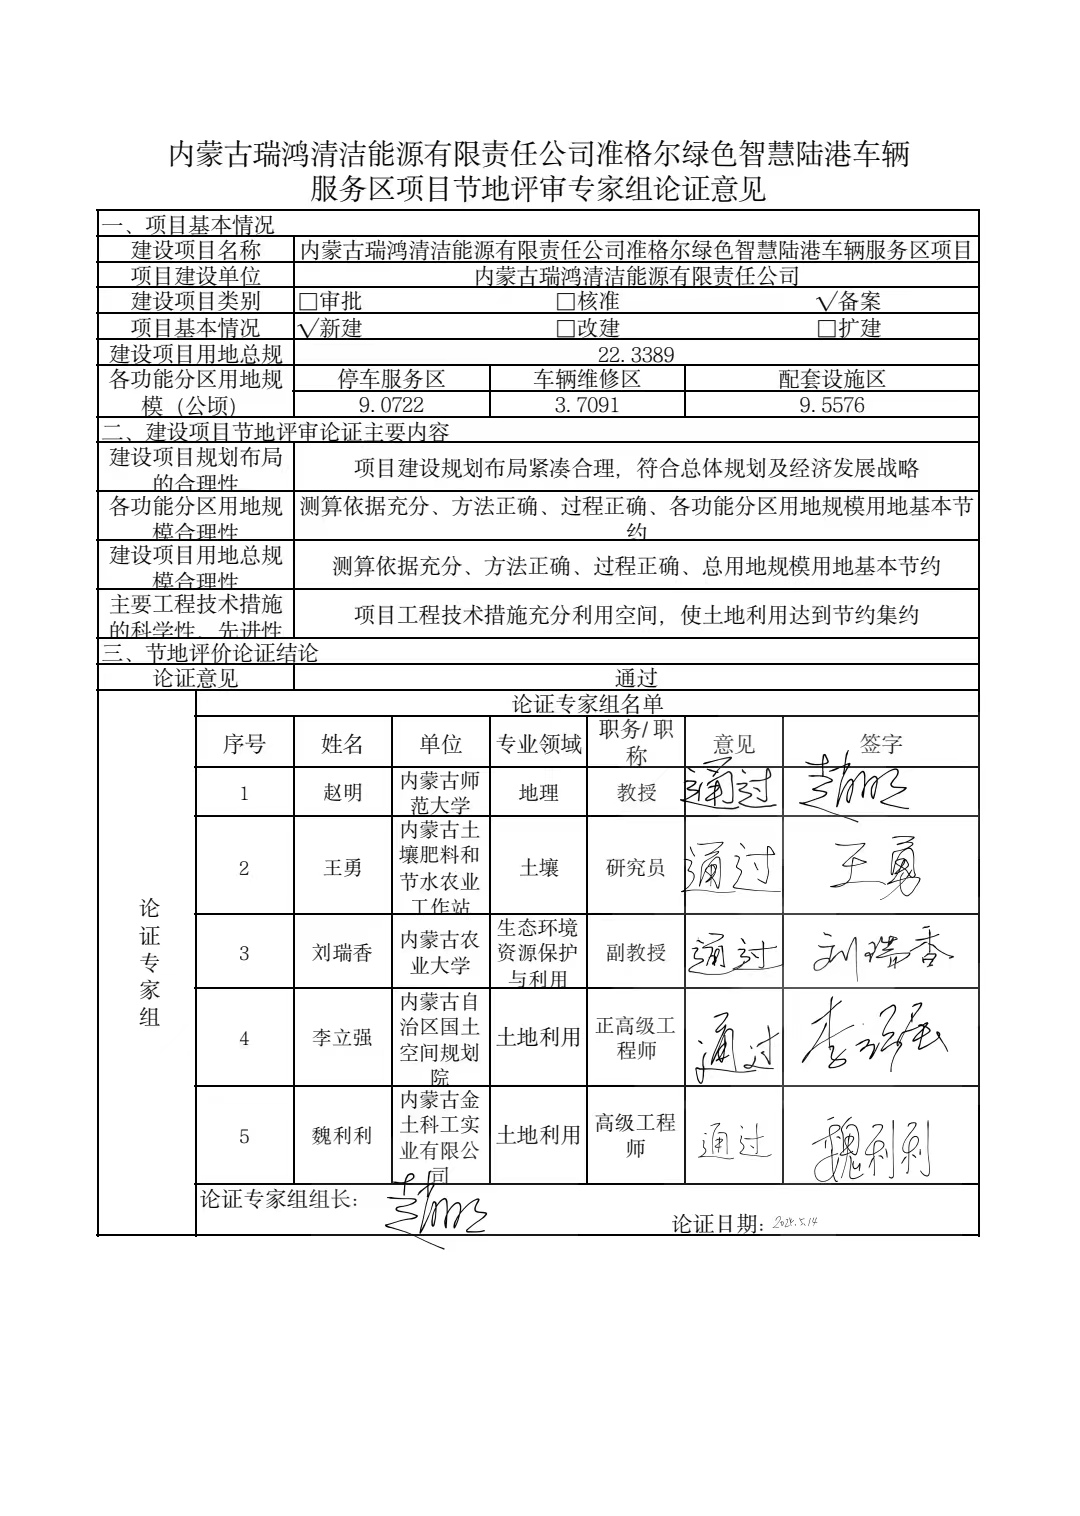 内蒙古瑞鸿清洁能源有限责任公司准格尔绿色智慧陆港车辆
服务区项目节地评审专家组论证意见
一、项目基本情况
建设项目名称 内蒙古瑞鸿清洁能源有限责任公司准格尔绿色智慧陆港车辆服务区项目
项目建设单位 内蒙古瑞鸿清洁能源有限责任公司
建设项目类别 □审批 □核准 √备案
项目基本情况 √新建 □改建 □扩建
建设项目用地总规 22.3389
各功能分区用地规
模（公顷）
停车服务区 车辆维修区 配套设施区
9.0722 3.7091 9.5576
二、建设项目节地评审论证主要内容
建设项目规划布局
的合理性
项目建设规划布局紧凑合理，符合总体规划及经济发展战略
各功能分区用地规
模合理性
测算依据充分、方法正确、过程正确、各功能分区用地规模用地基本节
约
建设项目用地总规
模合理性
测算依据充分、方法正确、过程正确、总用地规模用地基本节约
主要工程技术措施
的科学性、先进性
项目工程技术措施充分利用空间，使土地利用达到节约集约
三、节地评价论证结论
论证意见 通过
论证专家组
论证专家组名单
序号 姓名 单位 专业领域 职务/职
称 意见 签字
1 赵明 内蒙古师
范大学 地理 教授 通过 赵明
2 王勇 内蒙古土
壤肥料和
节水农业
工作站 土壤 研究员 通过 王勇
3 刘瑞香 内蒙古农
业大学 生态环境
资源保护
与利用 副教授 通过 刘瑞香
4 李立强 内蒙古自
治区国土
空间规划
院 土地利用 正高级工
程师 通过 李立强
5 魏利利 内蒙古金
土科工实
业有限公
司 土地利用 高级工程
师 通过 魏利利
论证专家组组长: 赵明
论证日期: